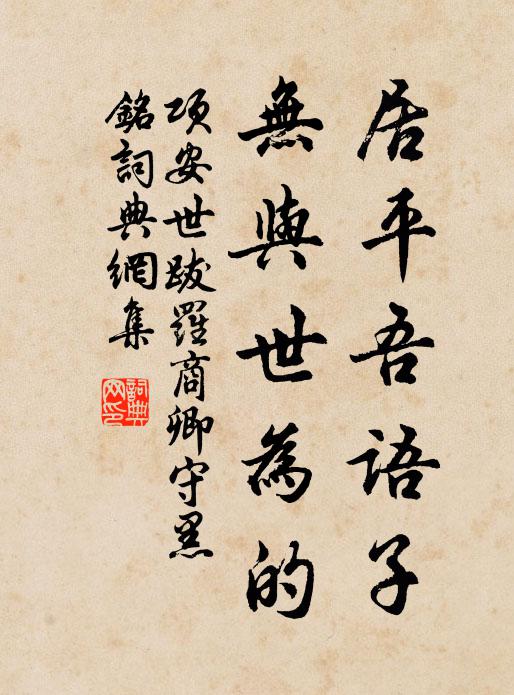 居平吾語子
無與世為的
項安世跋羅商卿守黑
銘詞典網集
詞典網印